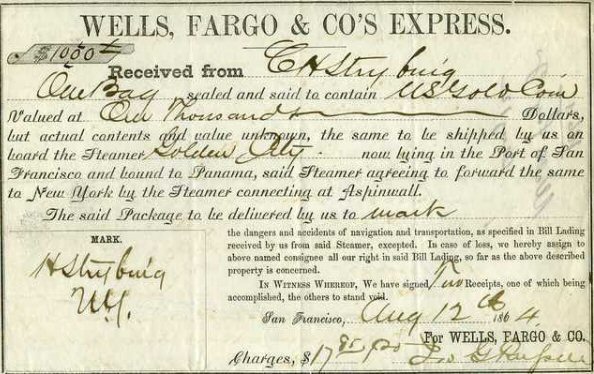 WELLS, FARGO & CO'S EXPRESS.
$1000
Received from C H Strybing
One Bag sealed and said to contain US Gold Coin
Valued at One Thousand Dollars,
but actual contents and value unknown, the same to be shipped by us on
board the Steamer Golden City now lying in the Port of San
Francisco and bound to Panama, said Steamer agreeing to forward the same
to New York by the Steamer connecting at Aspinwall.
The said Package to be delivered by us to mark
MARK.
H Strybing
N.Y.
the dangers and accidents of navigation and transportation, as specified in Bill Lading
received by us from said Steamer, excepted. In case of loss, we hereby assign to
above named consignee all our right in said Bill Lading, so far as the above described
property is concerned.
IN WITNESS WHEREOF, We have signed Two Receipts, one of which being
accomplished, the others to stand void.
San Francisco, Aug 12 1864.
For WELLS, FARGO & CO.
Charges, $17